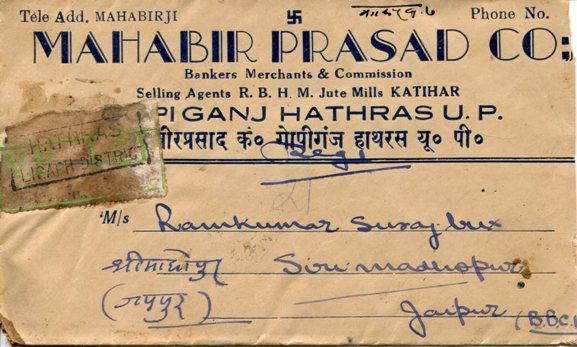 Tele Add. MAHABIRJI 卐 Phone No.
MAHABIR PRASAD CO:
Bankers Merchants & Commission
Selling Agents R. B. H. M. Jute Mills KATIHAR
PIGANJ HATHRAS U. P.
वीरप्रसाद कं० गोपीगंज हाथरस यू० पी०
Regd
HATHRAS
ALIGARH DISTRICT
M/s Ramkumar Surajbux
श्रीमाधोपुर Siri madhopur
(जयपुर) Jaipur (B.B.C.I